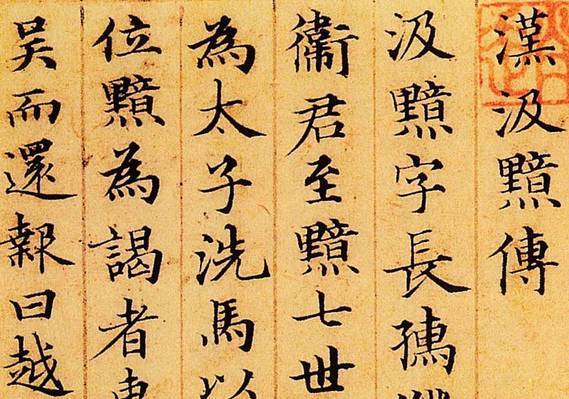 漢汲黯傳
汲黯字長孺
衛君至黯七世
為太子洗馬以
位黯為謁者
吴而還報曰越